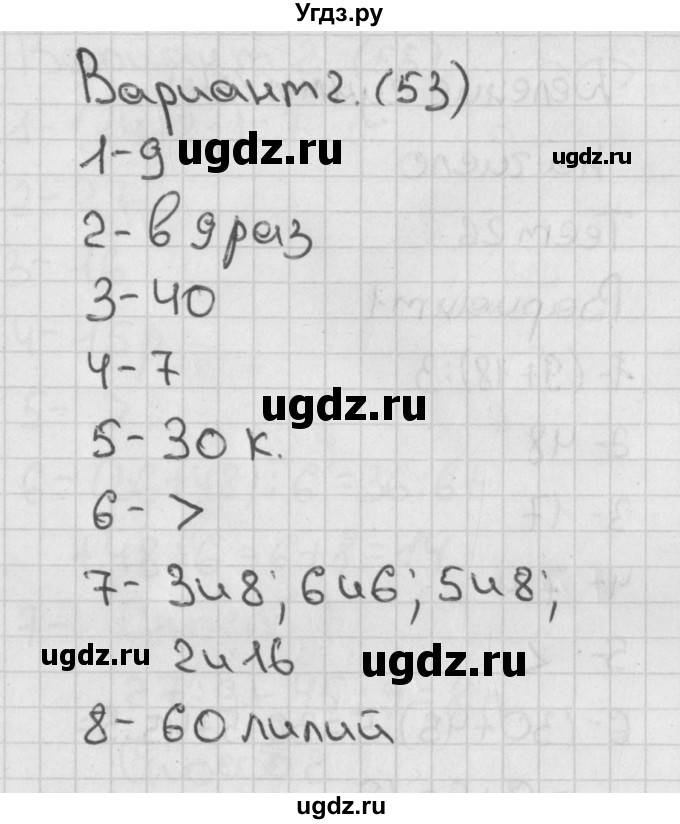 Угдз.ру
Вариант 2. (53)
1-9 ugdz.ru ugdz.ru
2- в 9 раз
3-40
4-7
ugdz.ru
5-30 к.
6- >
7- 3и8; 6и6; 5и8;
ugdz.ru 2и16 ugdz.ru
8-60 лилий
ugdz.ru